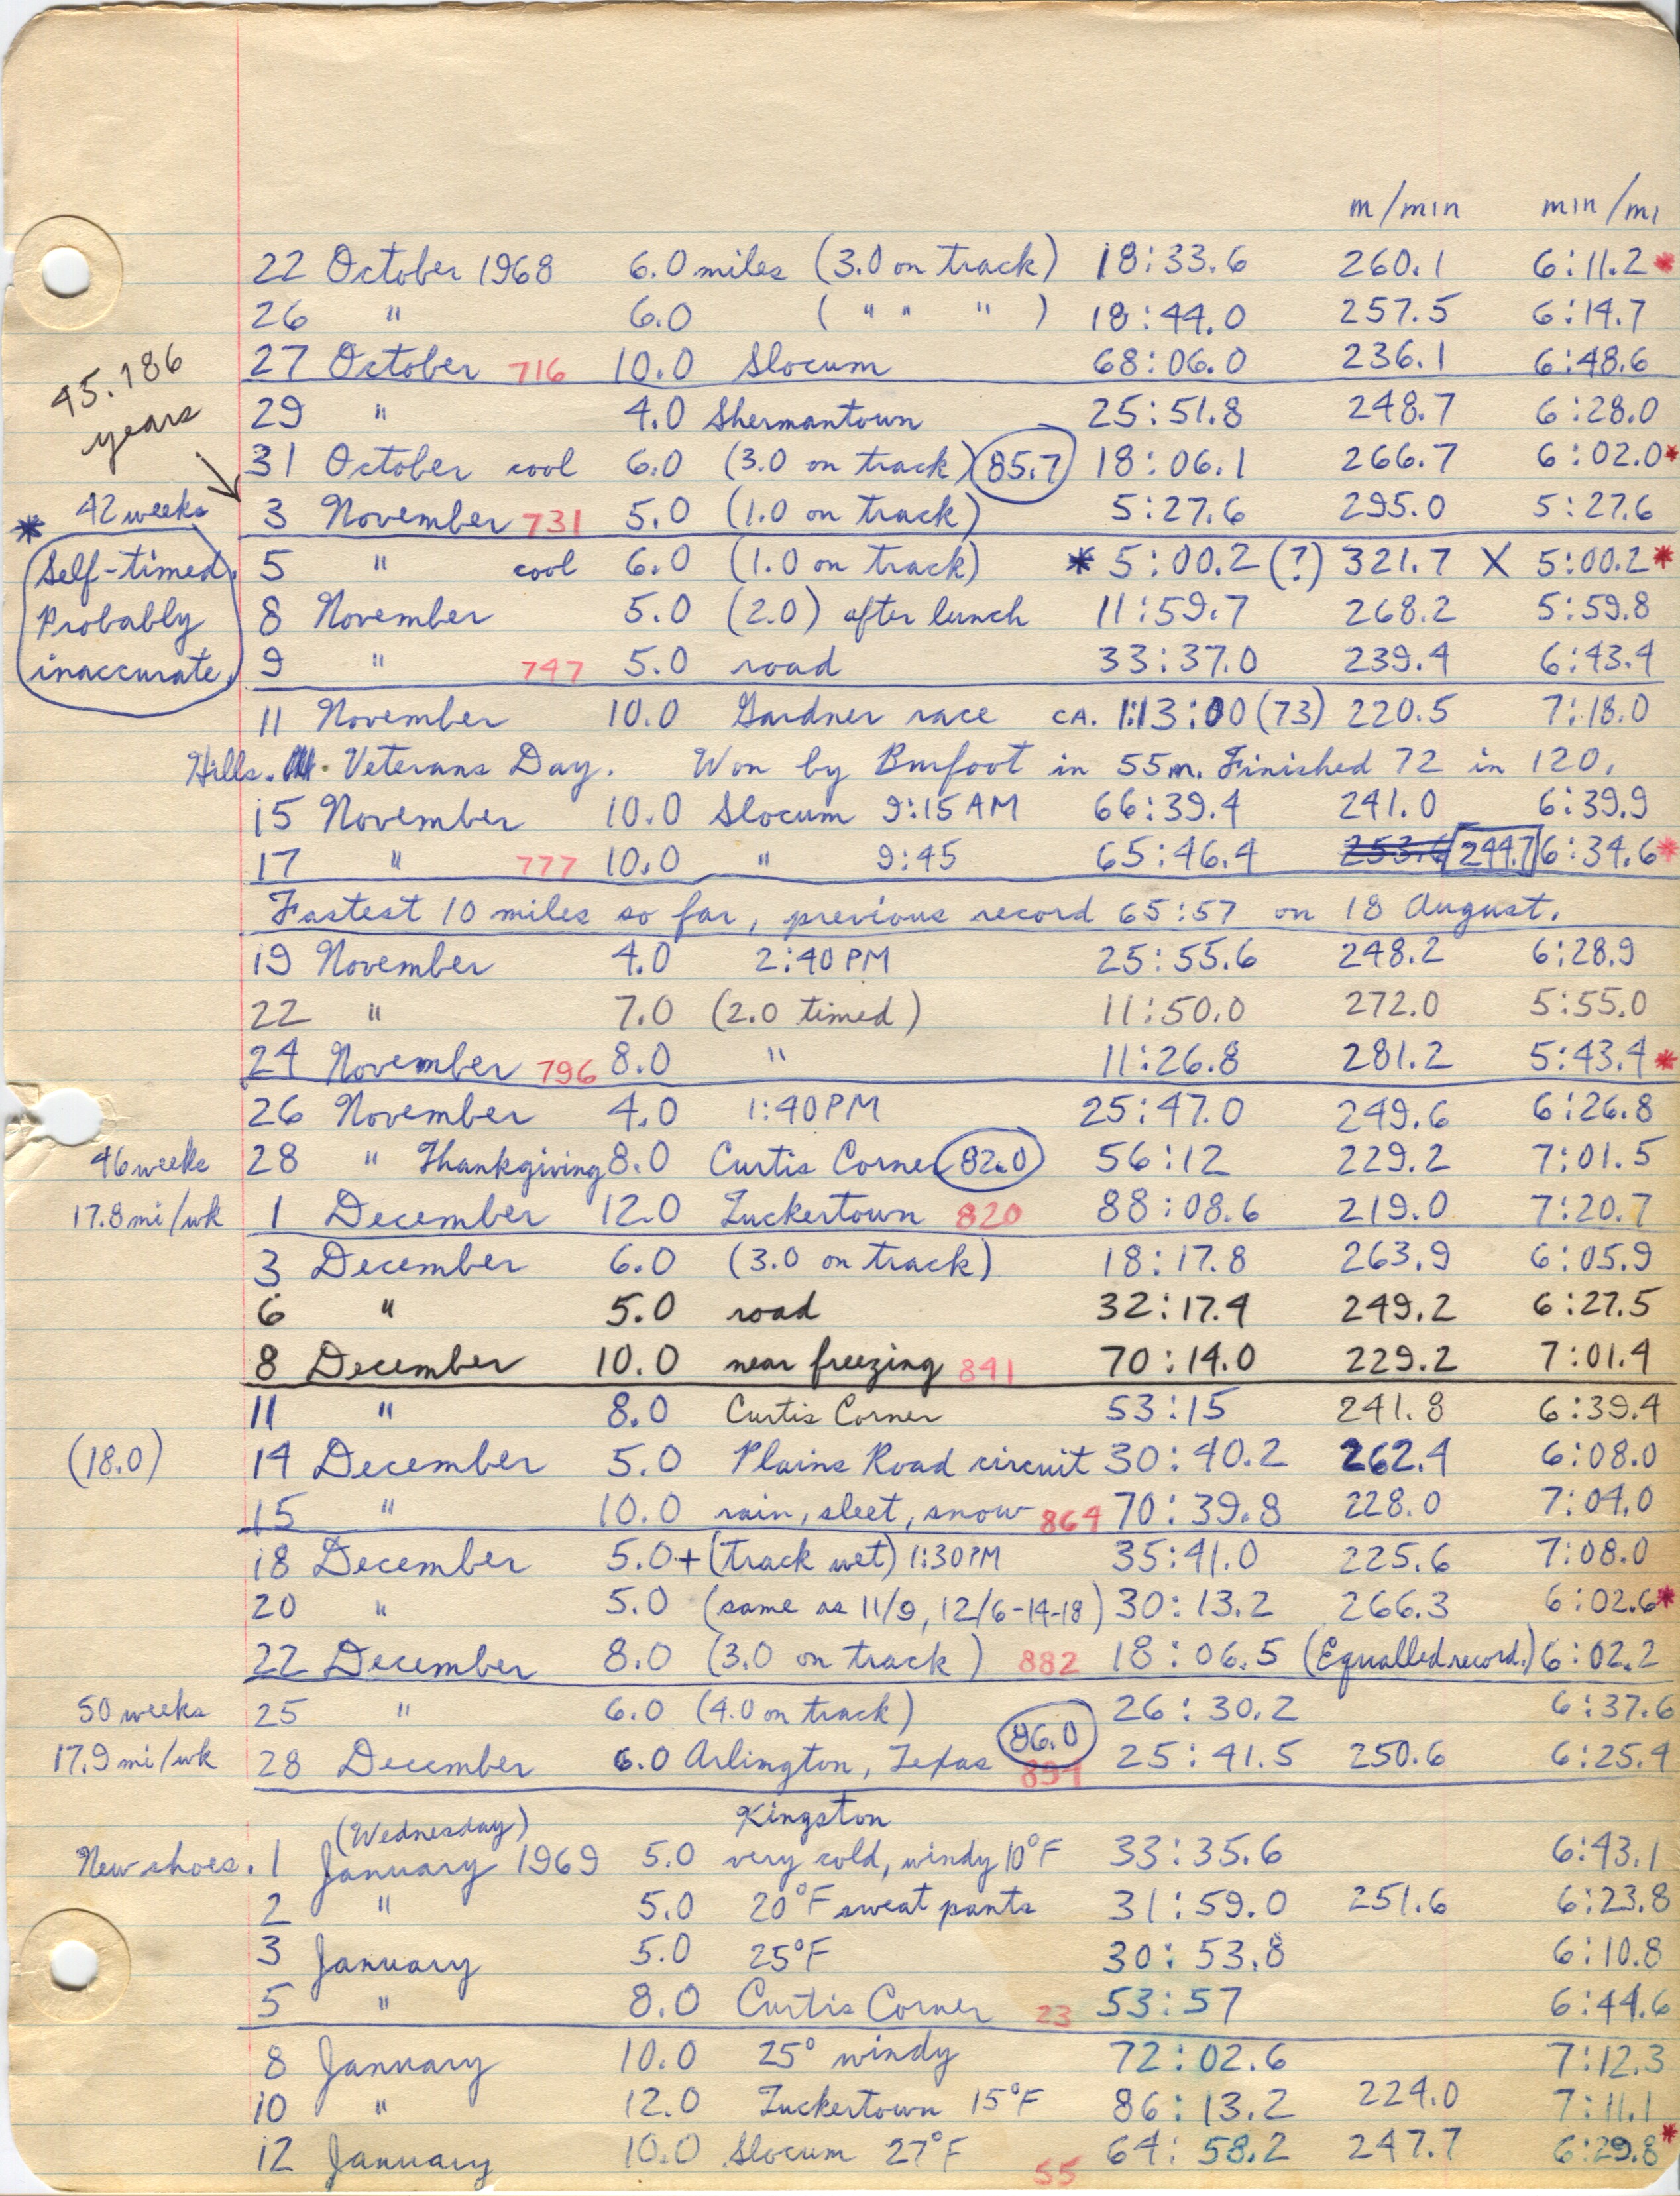 m/min min/mi
22 October 1968 6.0 miles (3.0 on track) 18:33.6 260.1 6:11.2*
26 " 6.0 ( " " " ) 18:44.0 257.5 6:14.7
27 October 716 10.0 Slocum 68:06.0 236.1 6:48.6
45.186
years
29 " 4.0 Shermantown 25:51.8 248.7 6:28.0
31 October cool 6.0 (3.0 on track) 85.7 18:06.1 266.7 6:02.0*
42 weeks 3 November 731 5.0 (1.0 on track) 5:27.6 295.0 5:27.6
* Self-timed. Probably inaccurate.
5 " cool 6.0 (1.0 on track) * 5:00.2 (?) 321.7 X 5:00.2*
8 November 5.0 (2.0) after lunch 11:59.7 268.2 5:59.8
9 " 747 5.0 road 33:37.0 239.4 6:43.4
11 November 10.0 Gardner race CA. 1:13:00 (73) 220.5 7:18.0
Hills. Veterans Day. Won by Burfoot in 55m. Finished 72 in 120.
15 November 10.0 Slocum 9:15 AM 66:39.4 241.0 6:39.9
17 " 777 10.0 " 9:45 65:46.4 253.6 244.7 6:34.6*
Fastest 10 miles so far, previous record 65:57 on 18 August.
19 November 4.0 2:40 PM 25:55.6 248.2 6:28.9
22 " 7.0 (2.0 timed) 11:50.0 272.0 5:55.0
24 November 796 8.0 " 11:26.8 281.2 5:43.4*
26 November 4.0 1:40 PM 25:47.0 249.6 6:26.8
46 weeks 28 " Thankgiving 8.0 Curtis Corner 82.0 56:12 229.2 7:01.5
17.8 mi/wk 1 December 12.0 Tuckertown 820 88:08.6 219.0 7:20.7
3 December 6.0 (3.0 on track) 18:17.8 263.9 6:05.9
6 " 5.0 road 32:17.4 249.2 6:27.5
8 December 10.0 near freezing 841 70:14.0 229.2 7:01.4
11 " 8.0 Curtis Corner 53:15 241.8 6:39.4
(18.0) 14 December 5.0 Plains Road circuit 30:40.2 262.4 6:08.0
15 " 10.0 rain, sleet, snow 864 70:39.8 228.0 7:04.0
18 December 5.0+ (track wet) 1:30 PM 35:41.0 225.6 7:08.0
20 " 5.0 (same as 11/9, 12/6-14-18) 30:13.2 266.3 6:02.6*
22 December 8.0 (3.0 on track) 882 18:06.5 (Equalled record.) 6:02.2
50 weeks 25 " 6.0 (4.0 on track) 26:30.2 6:37.6
17.9 mi/wk 28 December 6.0 Arlington, Texas 86.0 894 25:41.5 250.6 6:25.4
(Wednesday) Kingston
New shoes. 1 January 1969 5.0 very cold, windy 10°F 33:35.6 6:43.1
2 " 5.0 20°F sweat pants 31:59.0 251.6 6:23.8
3 January 5.0 25°F 30:53.8 6:10.8
5 " 8.0 Curtis Corner 23 53:57 6:44.6
8 January 10.0 25° windy 72:02.6 7:12.3
10 " 12.0 Tuckertown 15°F 86:13.2 224.0 7:11.1
12 January 10.0 Slocum 27°F 55 64:58.2 247.7 6:29.8*